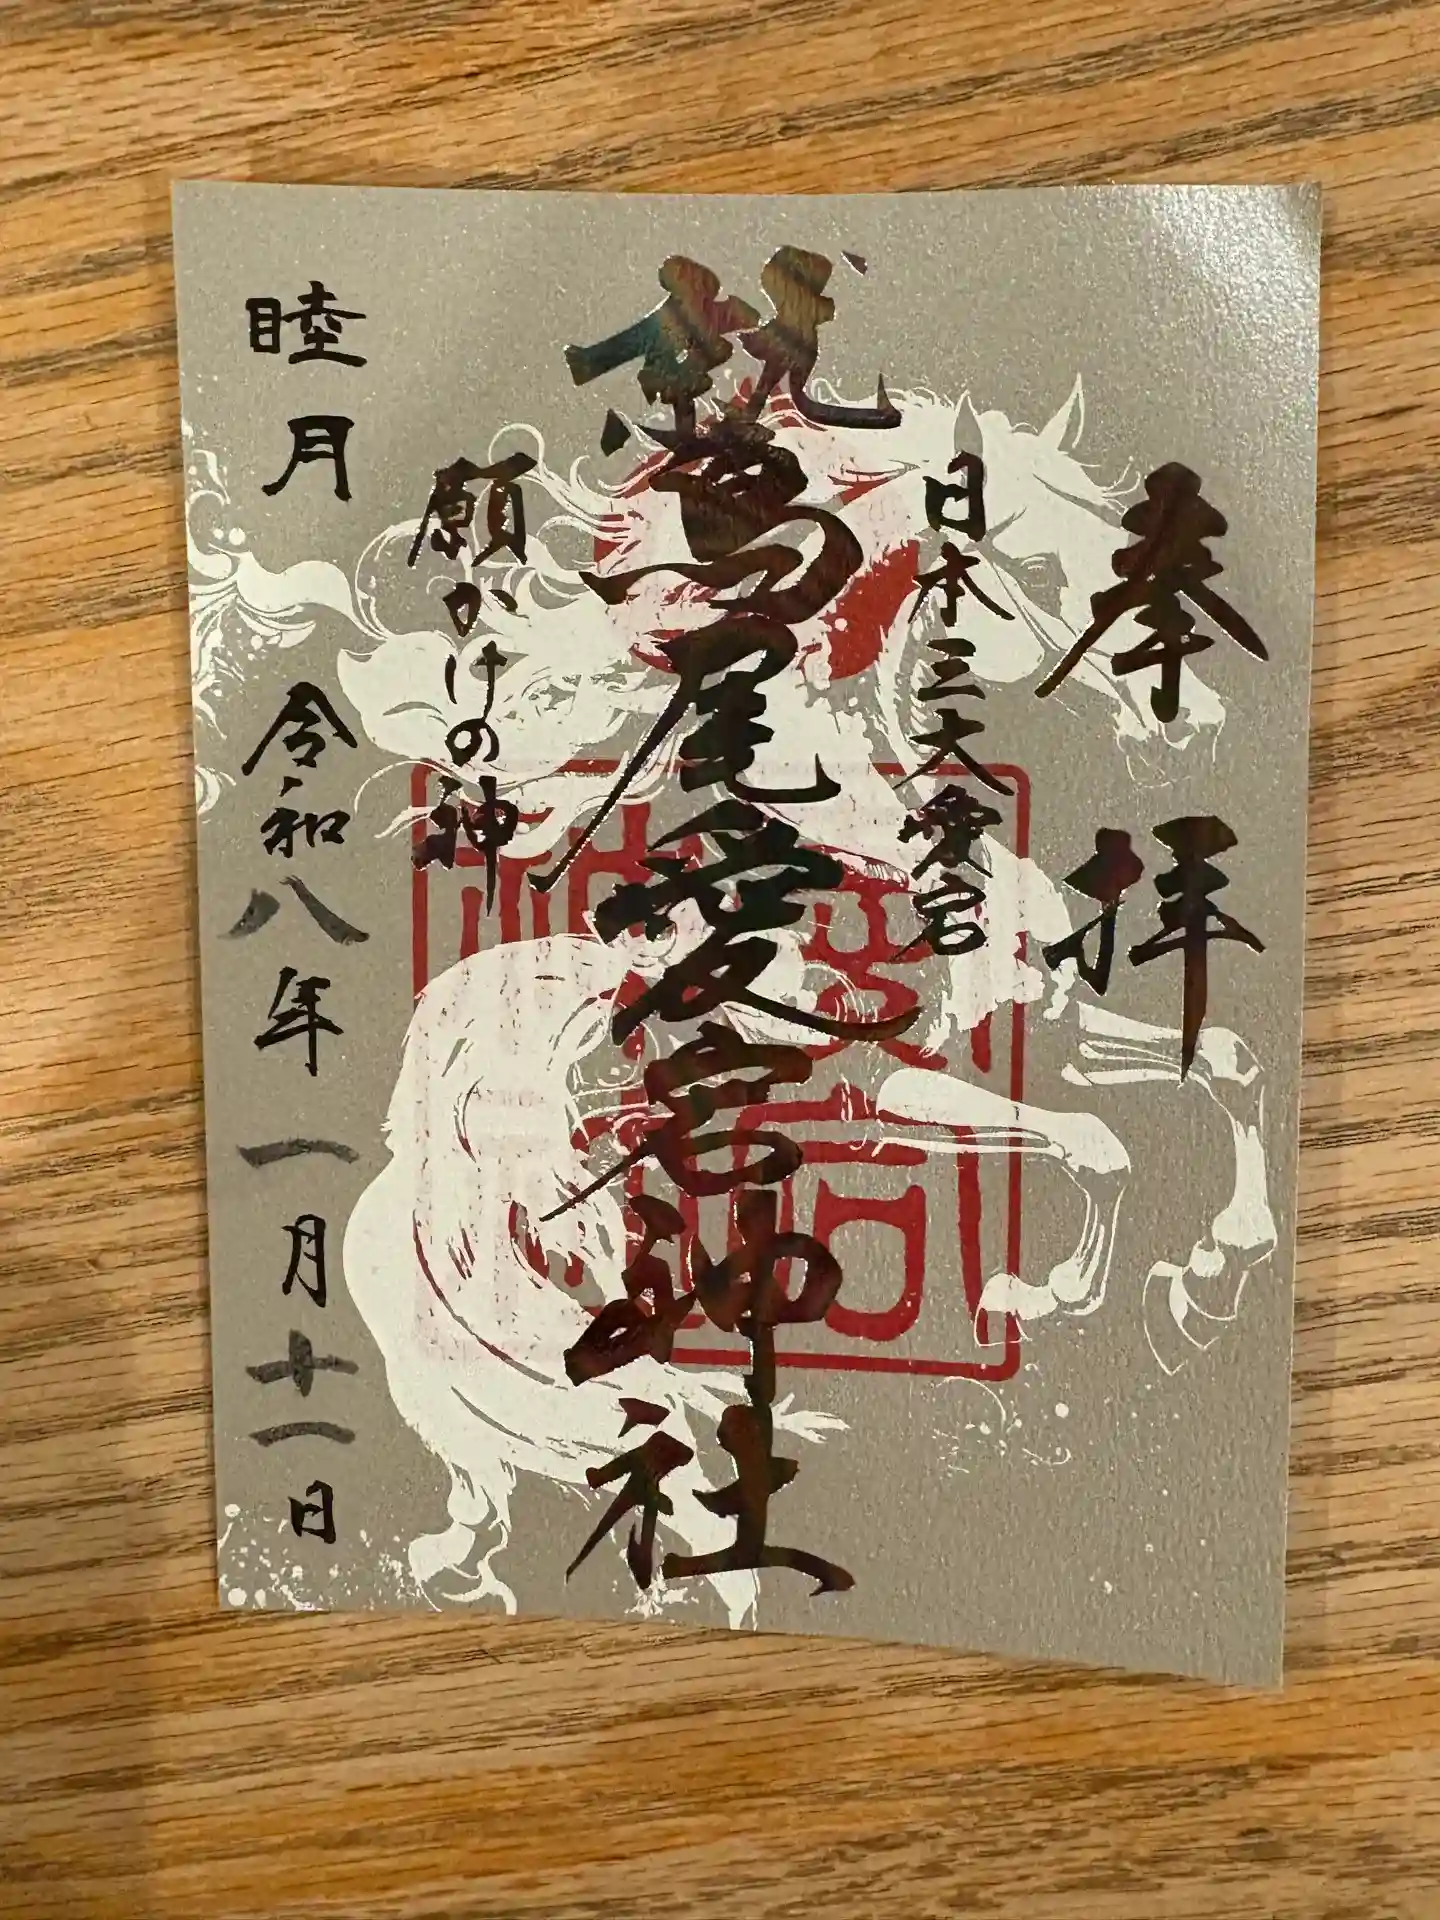 奉拝
日本三大愛宕
鷲尾愛宕神社
願かけの神
睦月 令和八年一月十一日